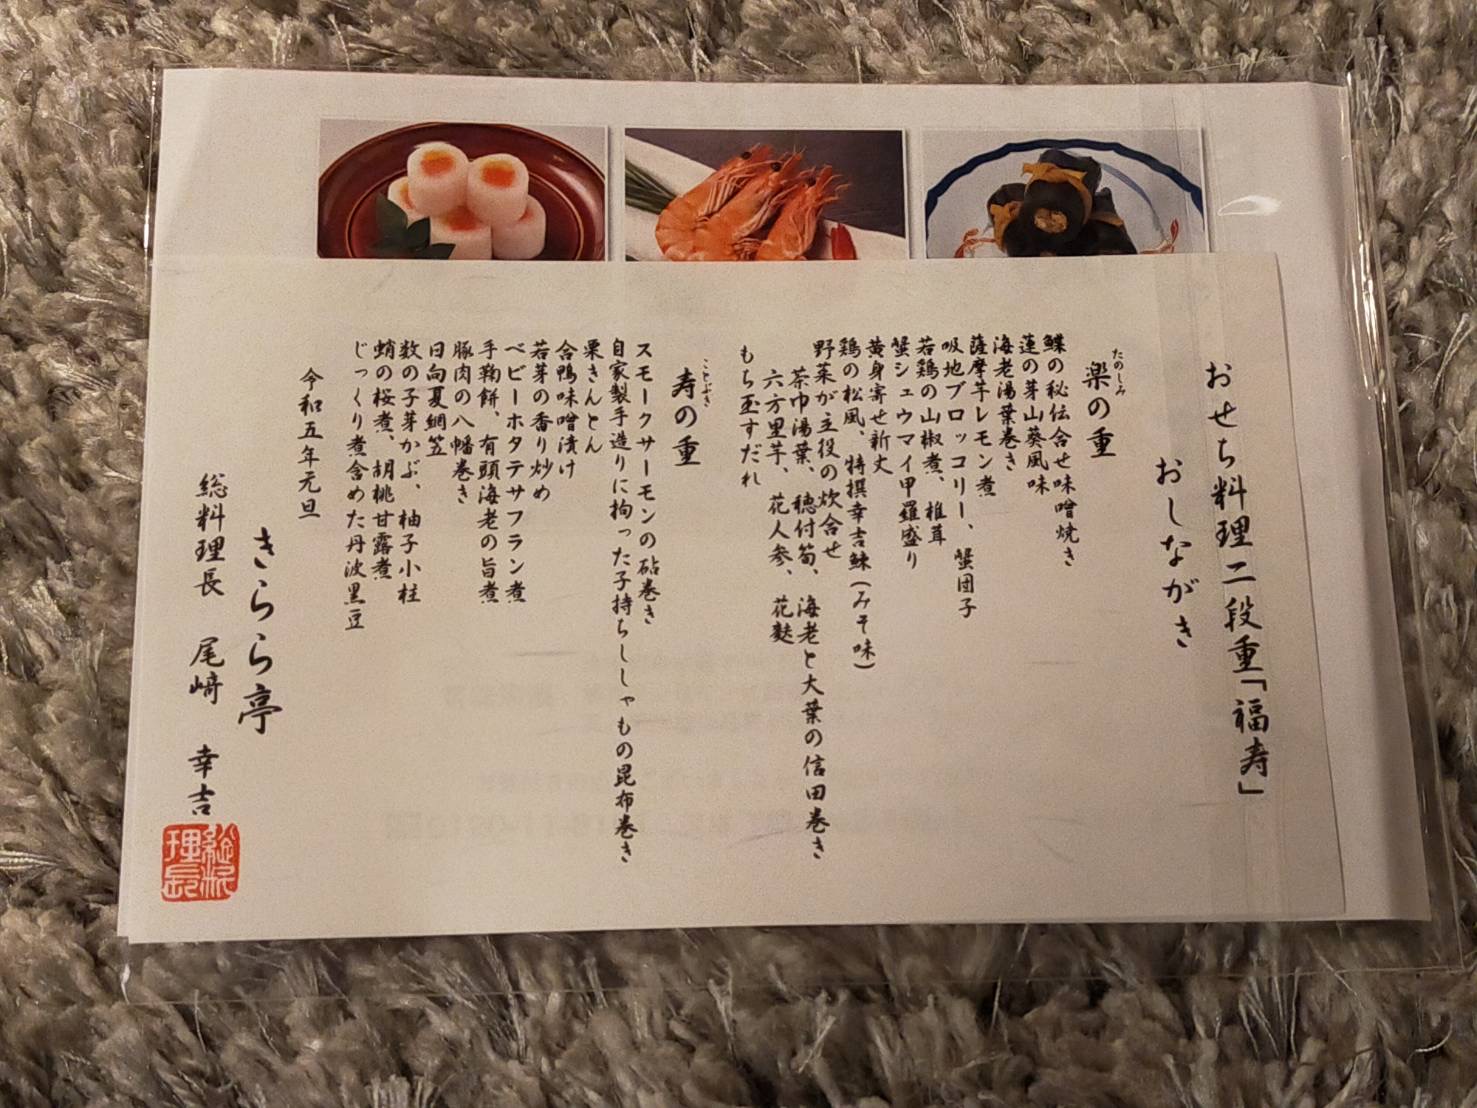 おせち料理二段重「福寿」
おしながき
たのしみ
楽の重
鰈の秘伝合せ味噌焼き
蓮の芽山葵風味
海老湯葉巻き
薩摩芋レモン煮
吸地ブロッコリー、蟹団子
若鶏の山椒煮、椎茸
蟹シュウマイ甲羅盛り
黄身寄せ新丈
鶏の松風、特撰幸吉鰊(みそ味)
野菜が主役の炊合せ
茶巾湯葉、穂付筍、海老と大葉の信田巻き
六方里芋、花人参、花麩
もち玉すだれ
ことぶき
寿の重
スモークサーモンの砧巻き
自家製手造りに拘った子持ちししゃもの昆布巻き
栗きんとん
合鴨味噌漬け
若芽の香り炒め
ベビーホタテサフラン煮
手鞠餅、有頭海老の旨煮
豚肉の八幡巻き
日向夏網笠
数の子芽かぶ、柚子小柱
蛸の桜煮、胡桃甘露煮
じっくり煮含めた丹波黒豆
令和五年元旦
きらら亭
総料理長 尾﨑 幸吉
総料
理長